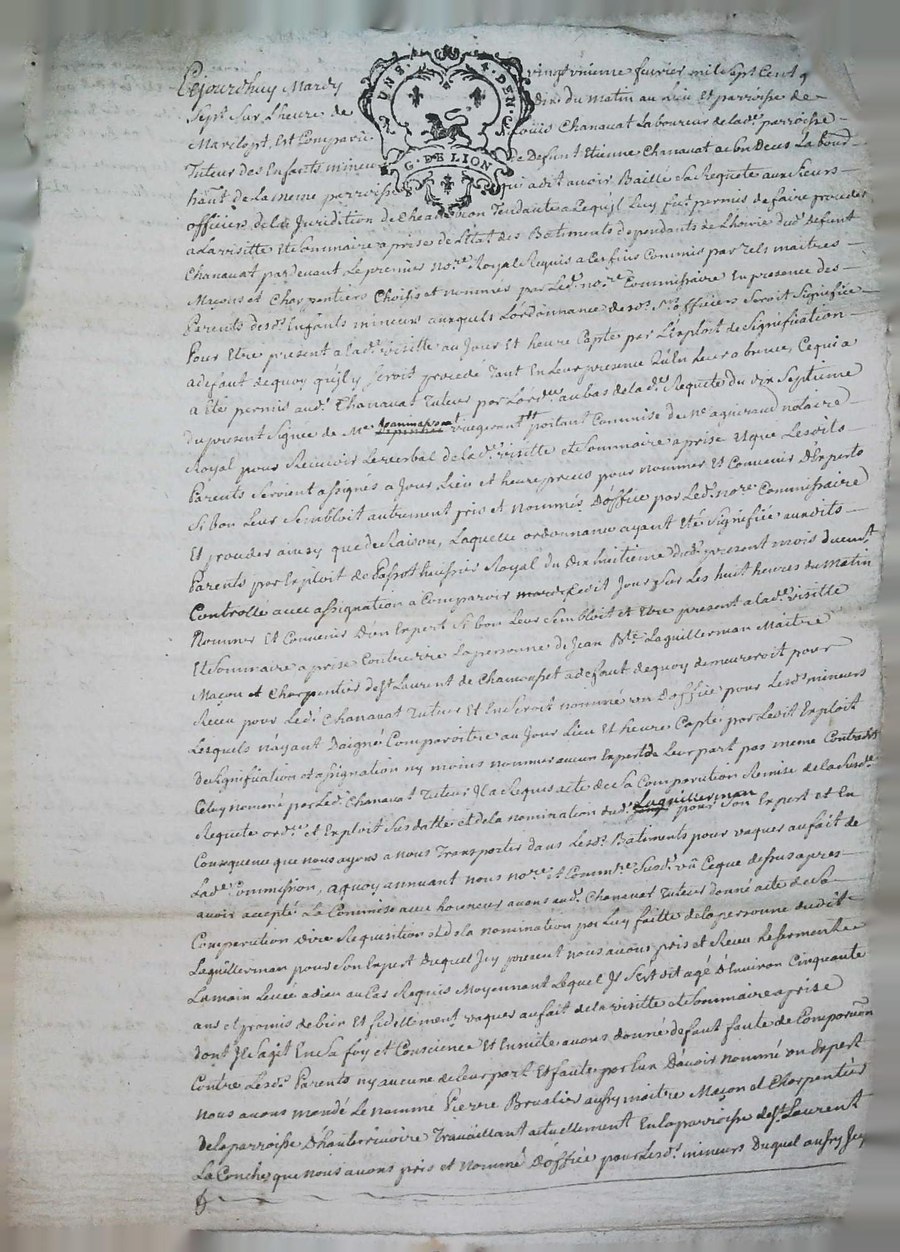 UNS. 4. DEN.
G. DE LION
Cejourdhuy Mardy vingt unieme fevrier mil sept Cent
Sept Sur L'heure de dix du matin au Lieu Et parroisse de
Marclopt, Est Comparu Louis Chanavat Laboureur de lad. parroisse
Tuteur des Enfants mineurs de Defunt Etienne Chanavat
haut de la meme parroisse qui a dit avoir Baillé Sa Requete aux Sieurs
officiers de la Juridition de Tendante a Cequ'il Luy fut permis de faire proceder
a La visitte Et Sommaire aprise de L'Etat des Batiments dependants de L'hoirie dud. defunt
Chanavat pardevant Le premier nore. Royal Requis a Ces fins Commis par tels maitres
Maçons et Charpentiers Choisis et nommés par Led. nore. Commissaire En presence des
Parents desd. Enfants mineurs auxquels L'ordonnance desd. Srs. officiers Seroit Signifiée
Pour Etre present a lad. visitte au Jour Et heure Capte par L'Exploit de Signifiation
a defaut dequoy qu'il y Seroit procede Tant En Leur presence Qu'En Leur absence, Cequi a
a Eté permis aud. Chanavat Tuteur par au bas de la d. Requete du dix Septieme
du present Signée de Me portant Commise de Me notaire
Royal pour Recevoir Le verbal de lad. visitte et Sommaire aprise Et que Lesdits
Parents Seroient assignes a Jour Lieu et heure precis pour nommer Et Convenir d'Experts
Si bon Leur Sembloit autrement pris et nommés d'office par Led. nore. Commissaire
Et proceder ainsy que de Raison, Laquelle ordonnance ayant Eté Signifiée auxdits
Parents par Exploit de huissier Royal du dix huitieme dud. present mois duement
Controllé avec assignation a Comparoir Cedit Jour Sur Les huit heures du Matin
Nommer Et Convenir D'un Expert Si bon Leur Sembloit et Etre present a lad. visitte
Et Sommaire aprise La personne de Jean Bte. Laguillerman Maitre
Maçon et Charpentier de St. Laurent de Chamousset a defaut dequoy demeureroit pour
Receu pour Led. Chanavat Tuteur Et En Seroit nommé un D'office pour Lesd. mineurs
Lesquels n'ayant Daigné Comparoitre au Jour Lieu Et heure Capte par Ledit Exploit
de Signifiation et assignation ny moins nommer aucun Expert de Leur part pas meme Contredit
Celuy nommé par Led. Chanavat Tuteur Il a Requis acte de Sa Comparution Remise de la Susd.
Requete ord. et Exploit Susdatte et de la nomination dud. Laguillerman pour Son Expert et En
Consequence que nous ayons a nous Transporter dans Lesd. Batiments pour vaquer au fait de
Lade. Commission, aquoy annuant nous nore. et Commre. Susd. vû Ceque dessus apres
avoir accepté La Commise avec honneur avons aud. Chanavat Tuteur donné acte de Sa
Comparution dire Requisition et de la nomination par Luy faitte de la personne dudit
Laguillerman pour Son Expert Duquel Jcy present nous avons pris et Receu Le Serment
La main Levée a dieu au Cas Requis Moyennant Lequel Jl S'est dit agé D'Environ Cinquante
ans et promis de bien Et fidellement vaquer au fait de la visitte et Sommaire aprise
dont Jl S'agit En Sa foy et Conscience Et Ensuite avons donné defaut faute de Comparution
Contre Lesd. Parents ny aucune de leur part Et faute par Eux D'avoir nommé un Expert
nous avons mandé Le nommé Pierre aussy maitre Maçon et Charpentier
de la parroisse D'hauterivoire Travaillant actuellement En la parroisse de St. Laurent
La Conche que nous avons pris et Nommé D'office pour Lesd. mineurs Duquel aussy Jcy